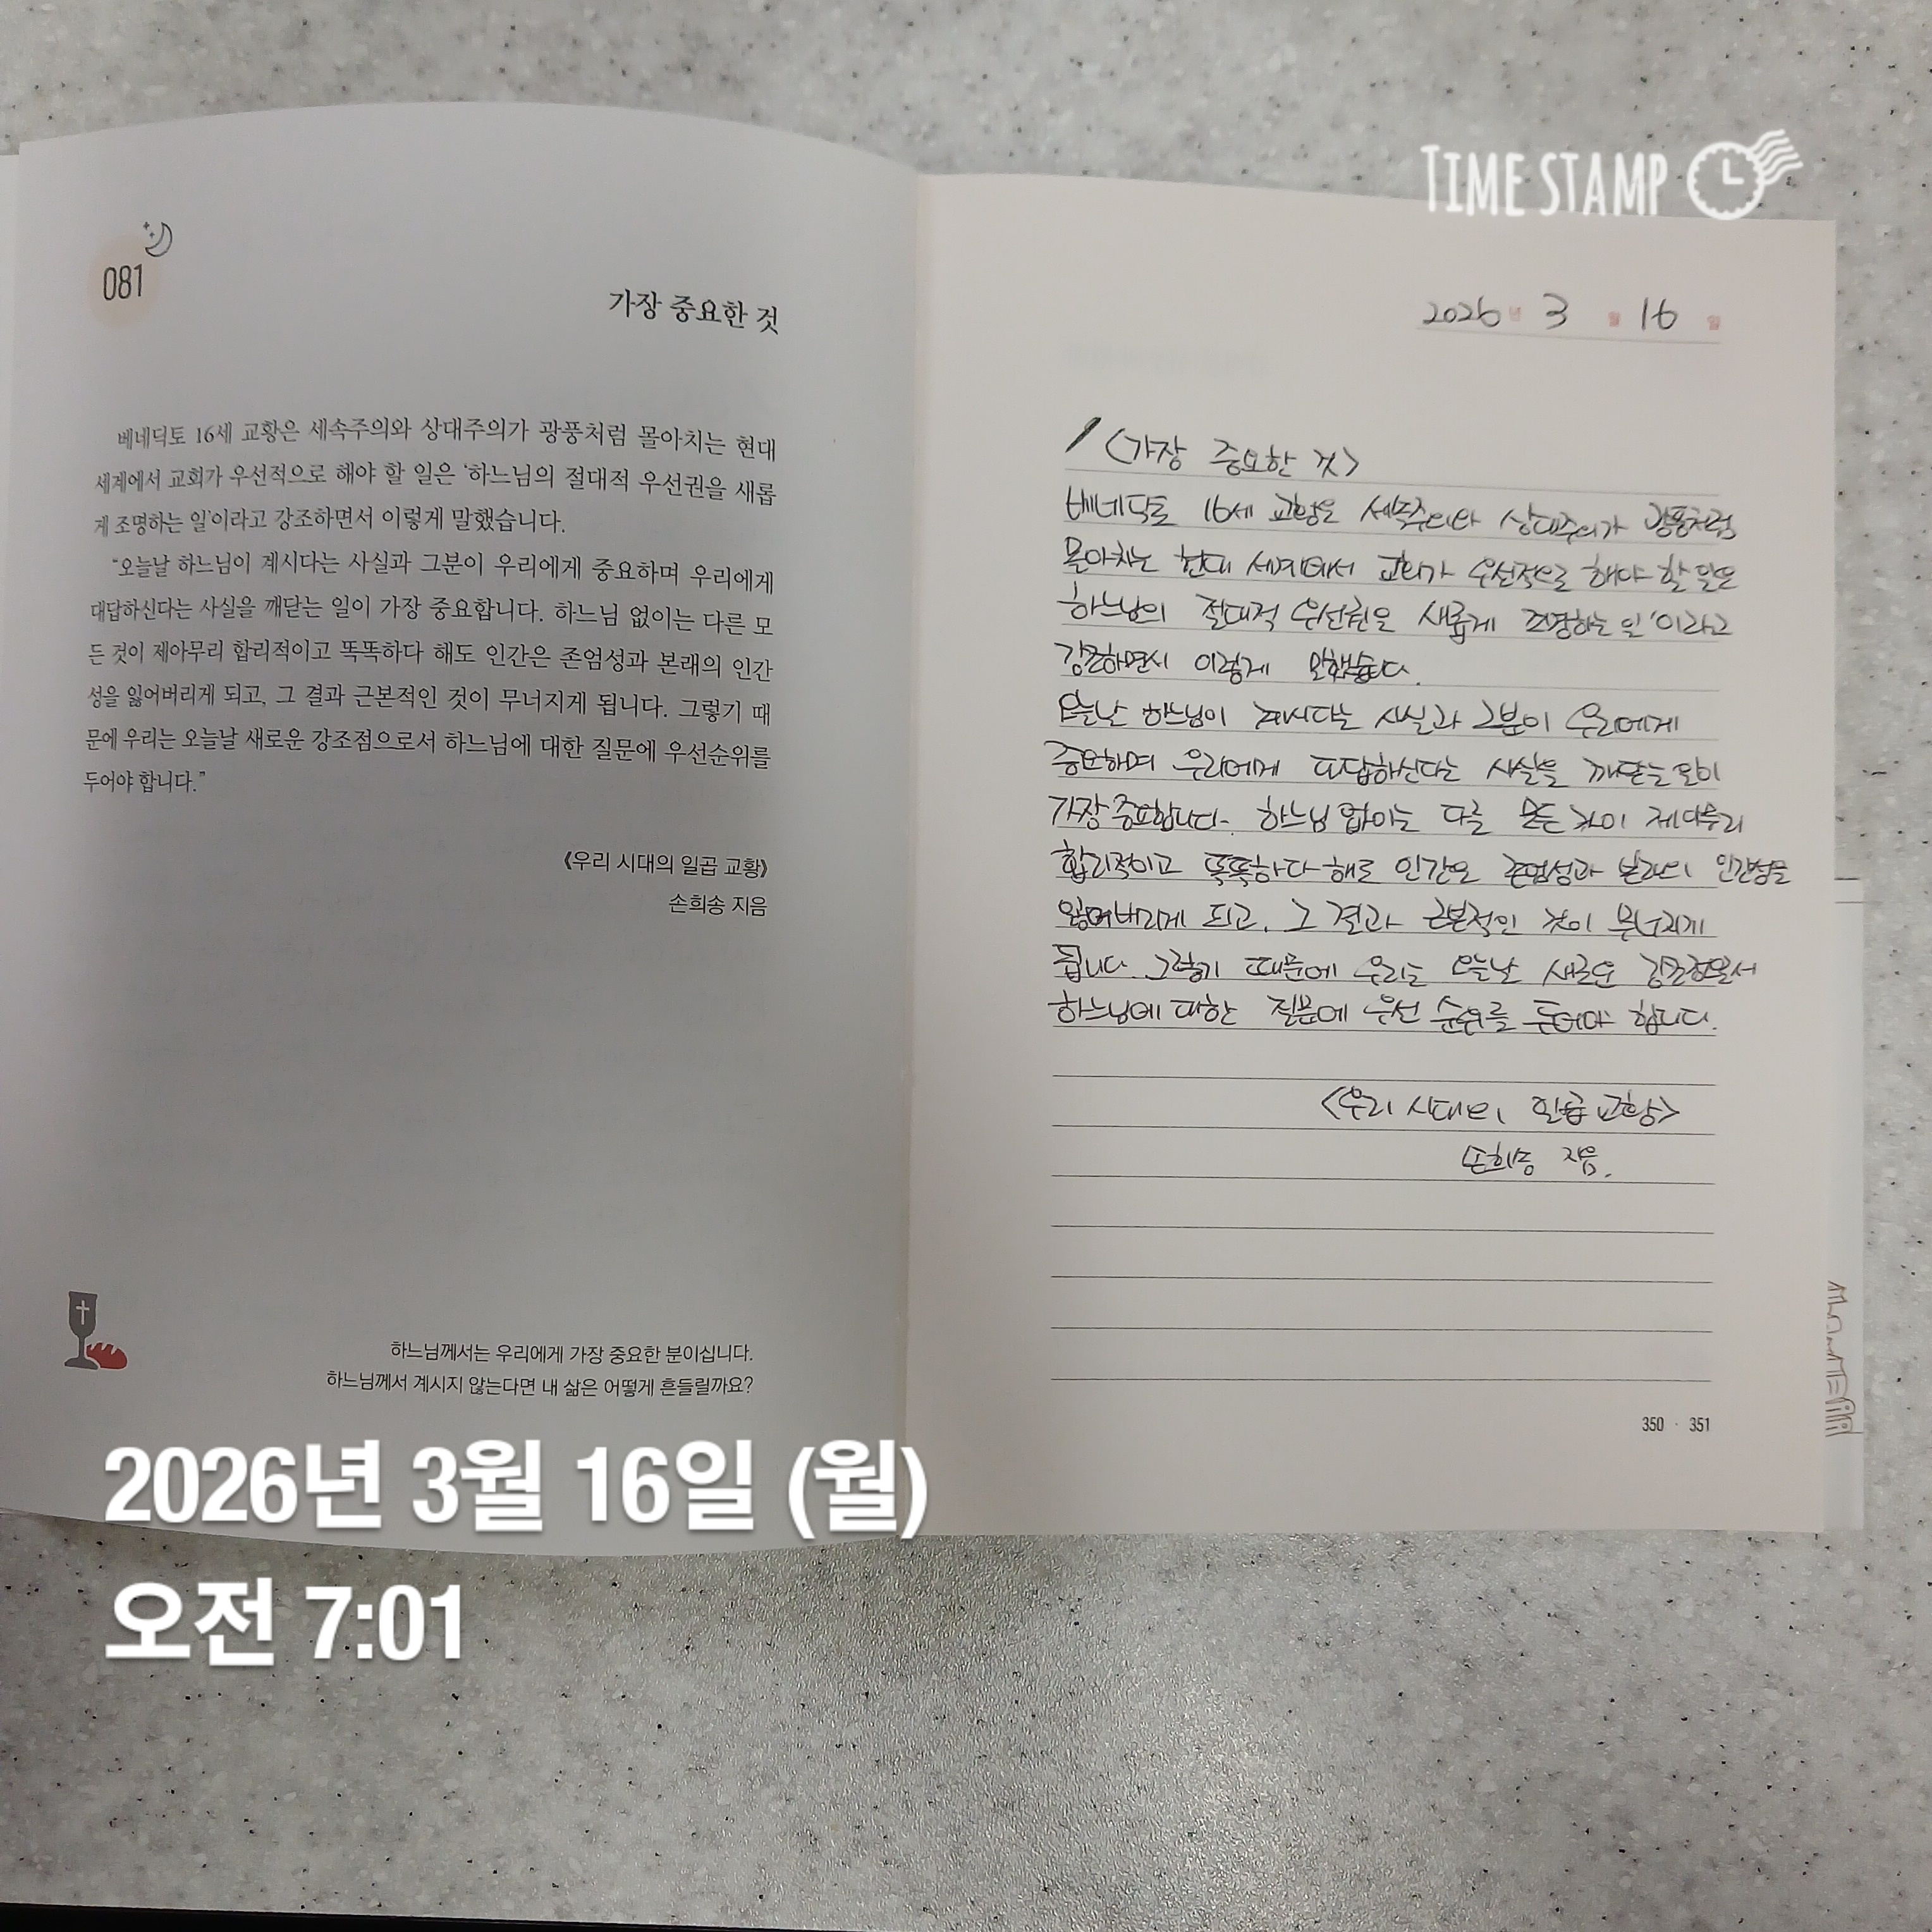 TIME STAMP
081
가장 중요한 것
베네딕토 16세 교황은 세속주의와 상대주의가 광풍처럼 몰아치는 현대
세계에서 교회가 우선적으로 해야 할 일은 ‘하느님의 절대적 우선권을 새롭
게 조명하는 일’이라고 강조하면서 이렇게 말했습니다.
“오늘날 하느님이 계시다는 사실과 그분이 우리에게 중요하며 우리에게
대답하신다는 사실을 깨닫는 일이 가장 중요합니다. 하느님 없이는 다른 모
든 것이 제아무리 합리적이고 똑똑하다 해도 인간은 존엄성과 본래의 인간
성을 잃어버리게 되고, 그 결과 근본적인 것이 무너지게 됩니다. 그렇기 때
문에 우리는 오늘날 새로운 강조점으로서 하느님에 대한 질문에 우선순위를
두어야 합니다.”
《우리 시대의 일곱 교황》
손희송 지음
하느님께서는 우리에게 가장 중요한 분이십니다.
하느님께서 계시지 않는다면 내 삶은 어떻게 흔들릴까요?
2026년 3월 16일
<가장 중요한 것>
베네딕토 16세 교황은 세속주의와 상대주의가 광풍처럼
몰아치는 현대 세계에서 교회가 우선적으로 해야 할 일은
하느님의 절대적 우선권은 새롭게 조명하는 일'이라고
강조하면서 이렇게 말했습니다.
오늘날 하느님이 계시다는 사실과 그분이 우리에게
중요하며 우리에게 대답하신다는 사실을 깨닫는 일이
가장 중요합니다. 하느님 없이는 다른 모든 것이 제아무리
합리적이고 똑똑하다 해도 인간은 존엄성과 본래의 인간성을
잃어버리게 되고, 그 결과 근본적인 것이 무너지게
됩니다. 그렇기 때문에 우리는 오늘날 새로운 강조점으로서
하느님에 대한 질문에 우선 순위를 두어야 합니다.
<우리 시대의 일곱 교황>
손희송 지음.
350 · 351
2026년 3월 16일 (월)
오전 7:01